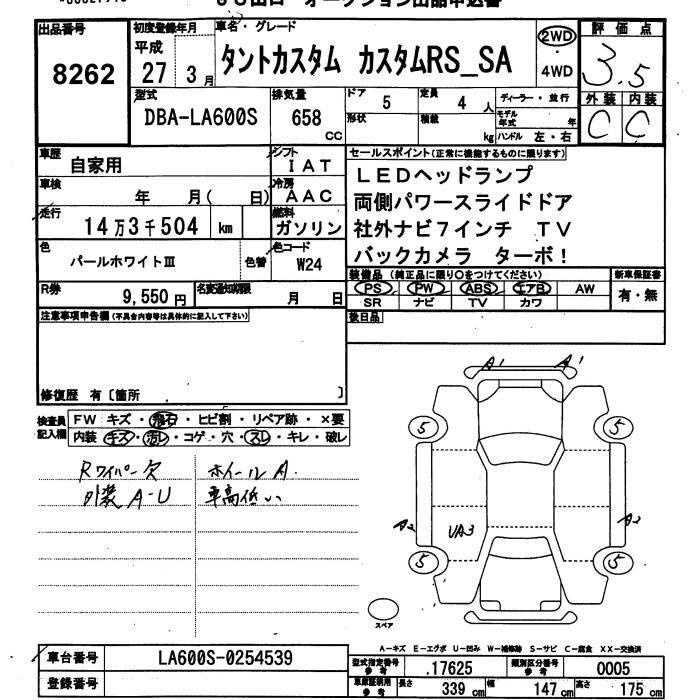 出品番号
8262
初度登録年月
平成
27 3月
車名・グレード
タントカスタム カスタムRS_SA
2WD
・
4WD
評価点
3.5
外装 内装
C C
型式
DBA-LA600S
排気量
658 cc
ドア 5
定員 4 人
形状
積載 kg
ディーラー・並行
モデル年式 年
ハンドル 左・右
車歴 自家用
シフト IAT
車検 年 月( 日)
冷房 AAC
走行 14万3千504 km
燃料 ガソリン
色 パールホワイトⅢ 色替
色コード W24
R券 9,550円
名変通知期限 月 日
セールスポイント(正常に機能するものに限ります)
LEDヘッドランプ
両側パワースライドドア
社外ナビ7インチ TV
バックカメラ ターボ!
装備品(純正品に限り○をつけてください)
PS PW ABS エアB AW
SR ナビ TV カワ
新車保証書
有・無
後日品
注意事項申告欄(不具合内容等は具体的に記入して下さい)
修復歴 有〔箇所 〕
検査員記入欄
FW キズ・飛石・ヒビ割・リペア跡・×要
内装 キズ・汚レ・コゲ・穴・スレ・キレ・破レ
Rワイパー欠
外装A-U
ホイールA.
車高低い
A1 A1
5 5
A2 UA3 A2
5 5
スペア
A-キズ E-エクボ U-凹み W-補修跡 S-サビ C-腐食 XX-交換済
車台番号 LA600S-0254539
登録番号
型式指定番号 参考 .17625
類別区分番号 参考 0005
車庫証明用 参考
長さ 339 cm
幅 147 cm
高さ 175 cm